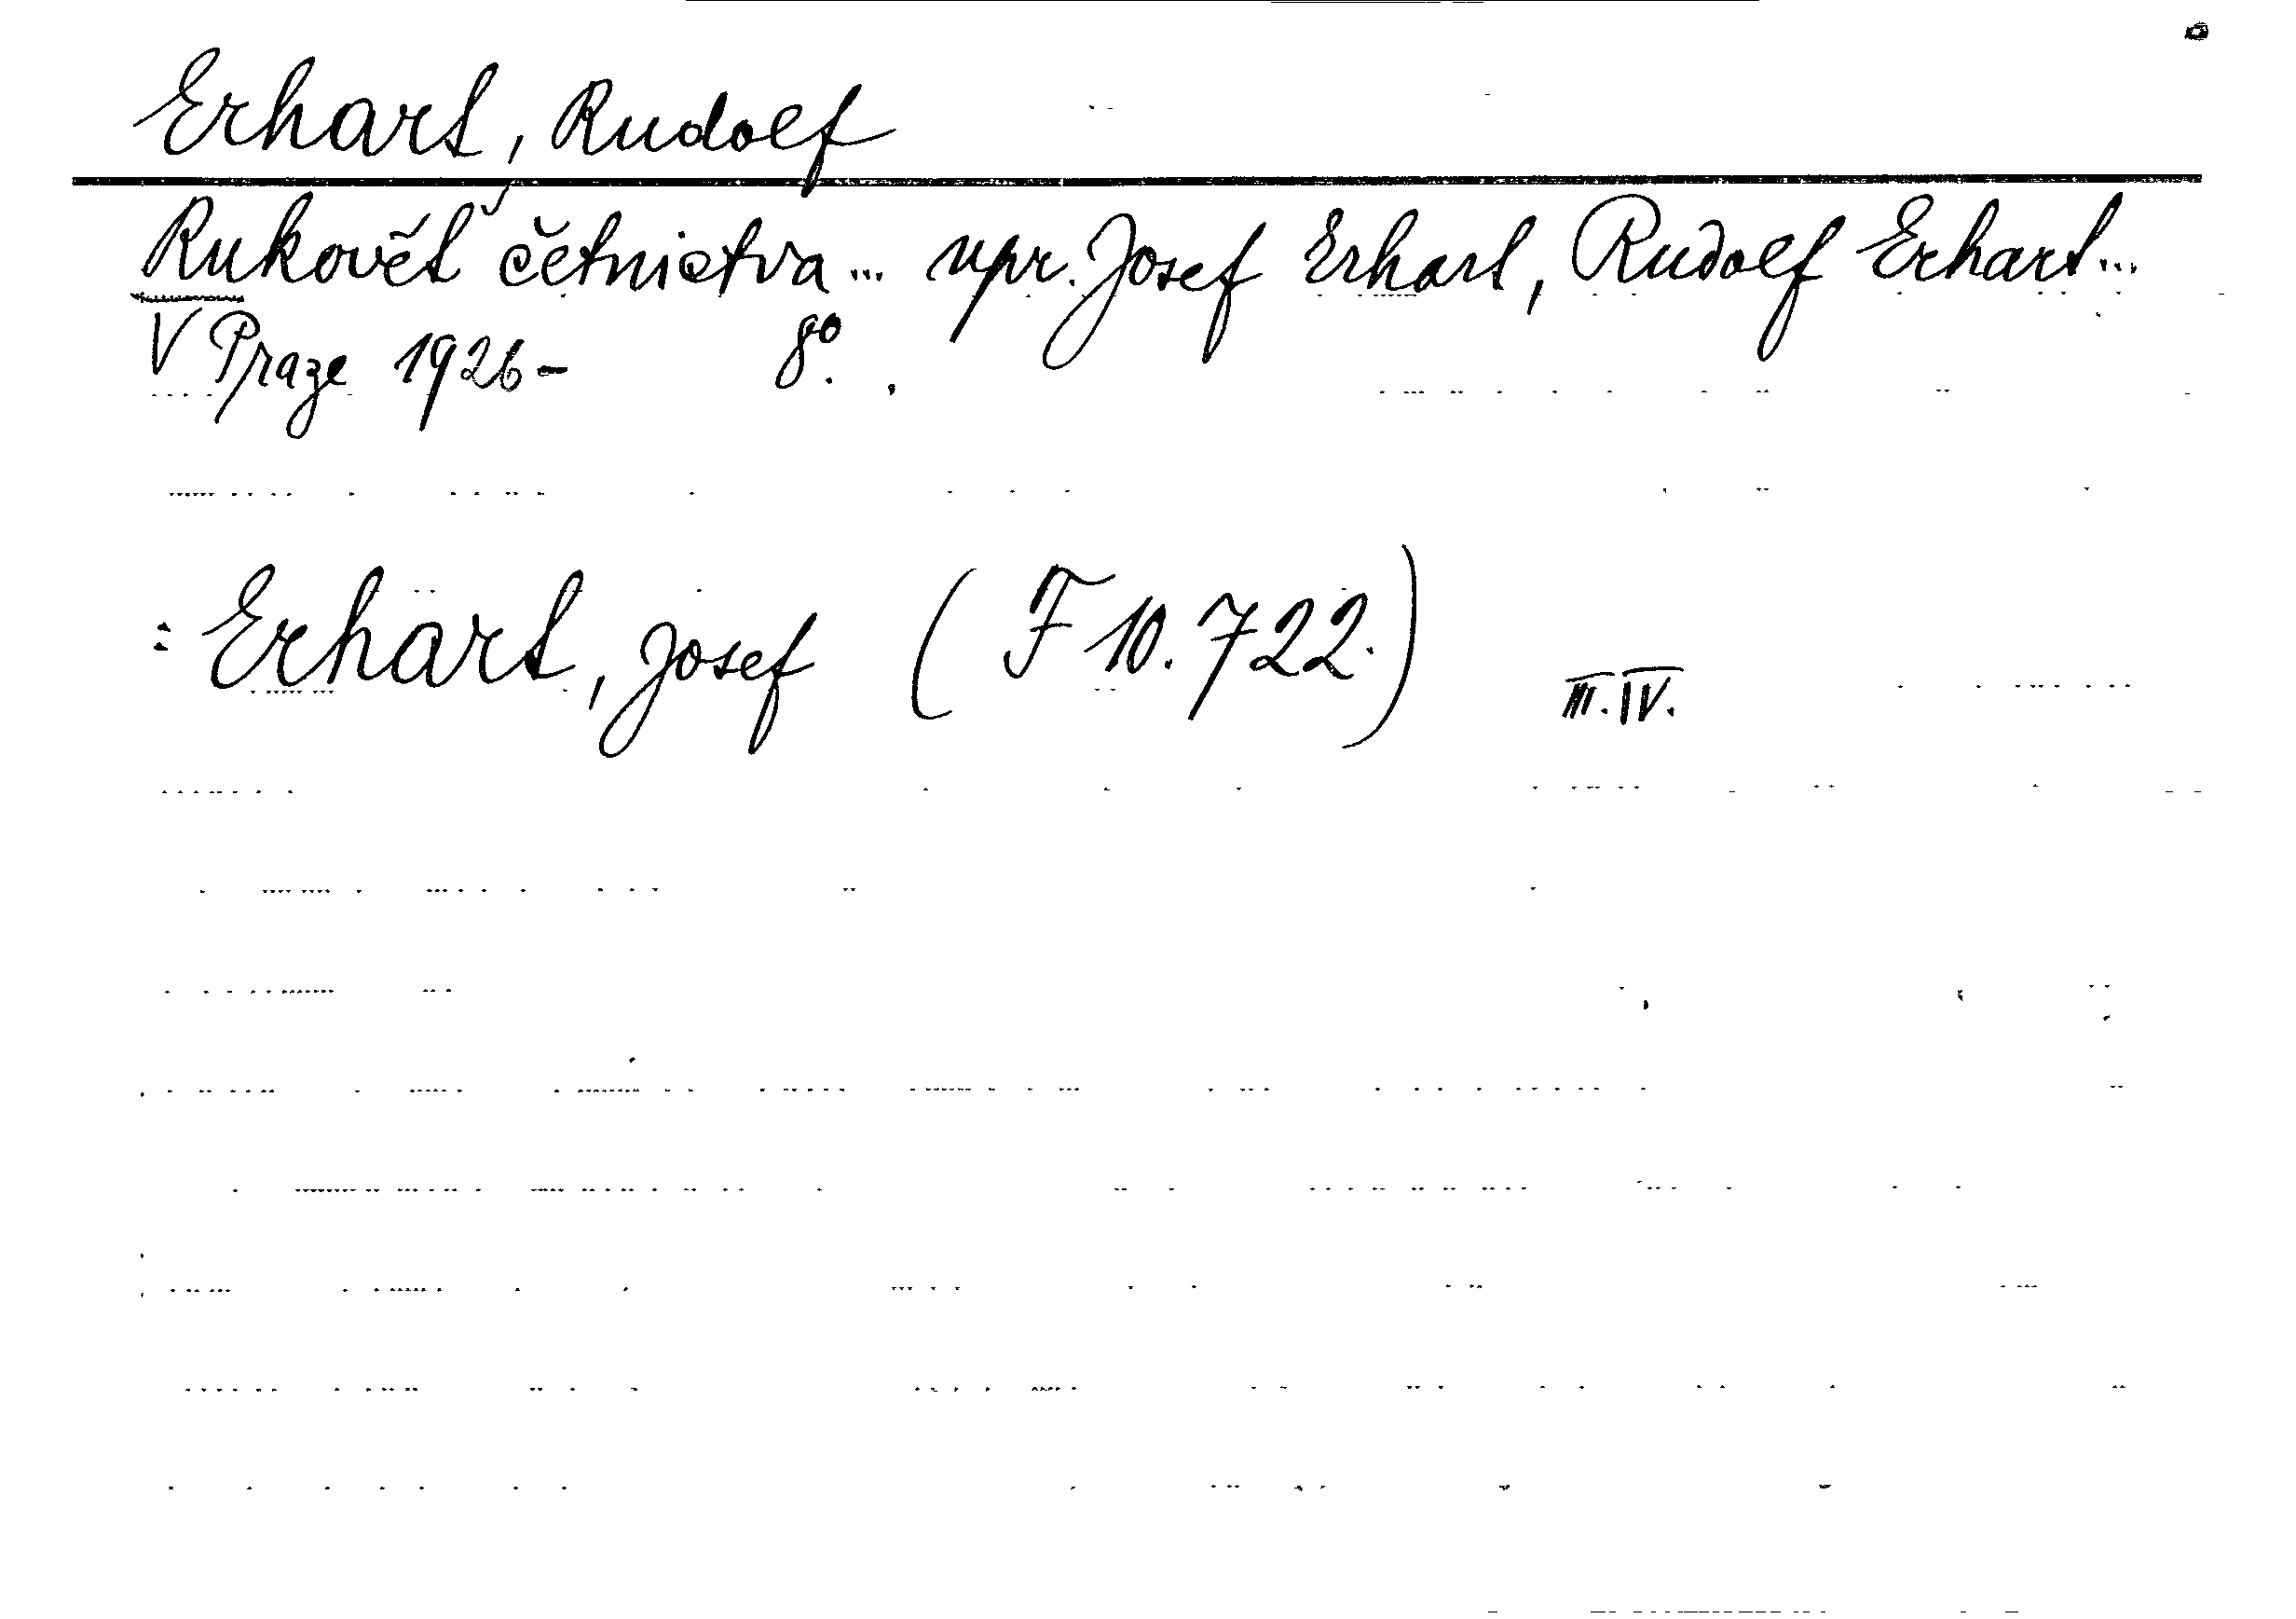 Erhart, Rudolf
Rukověť četnictva... upr. Josef Erhart, Rudolf Erhart...
V Praze 1926- 8°.
: Erhart, Josef (F 10.722.) III. IV.